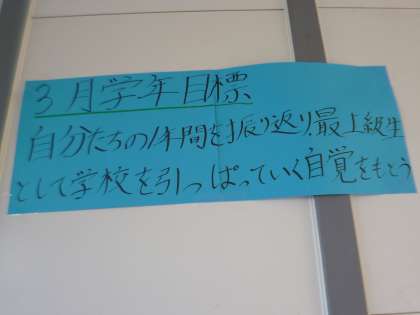 3月学年目標
自分たちの1年間を振り返り最上級生
として学校を引っぱっていく自覚をもとう